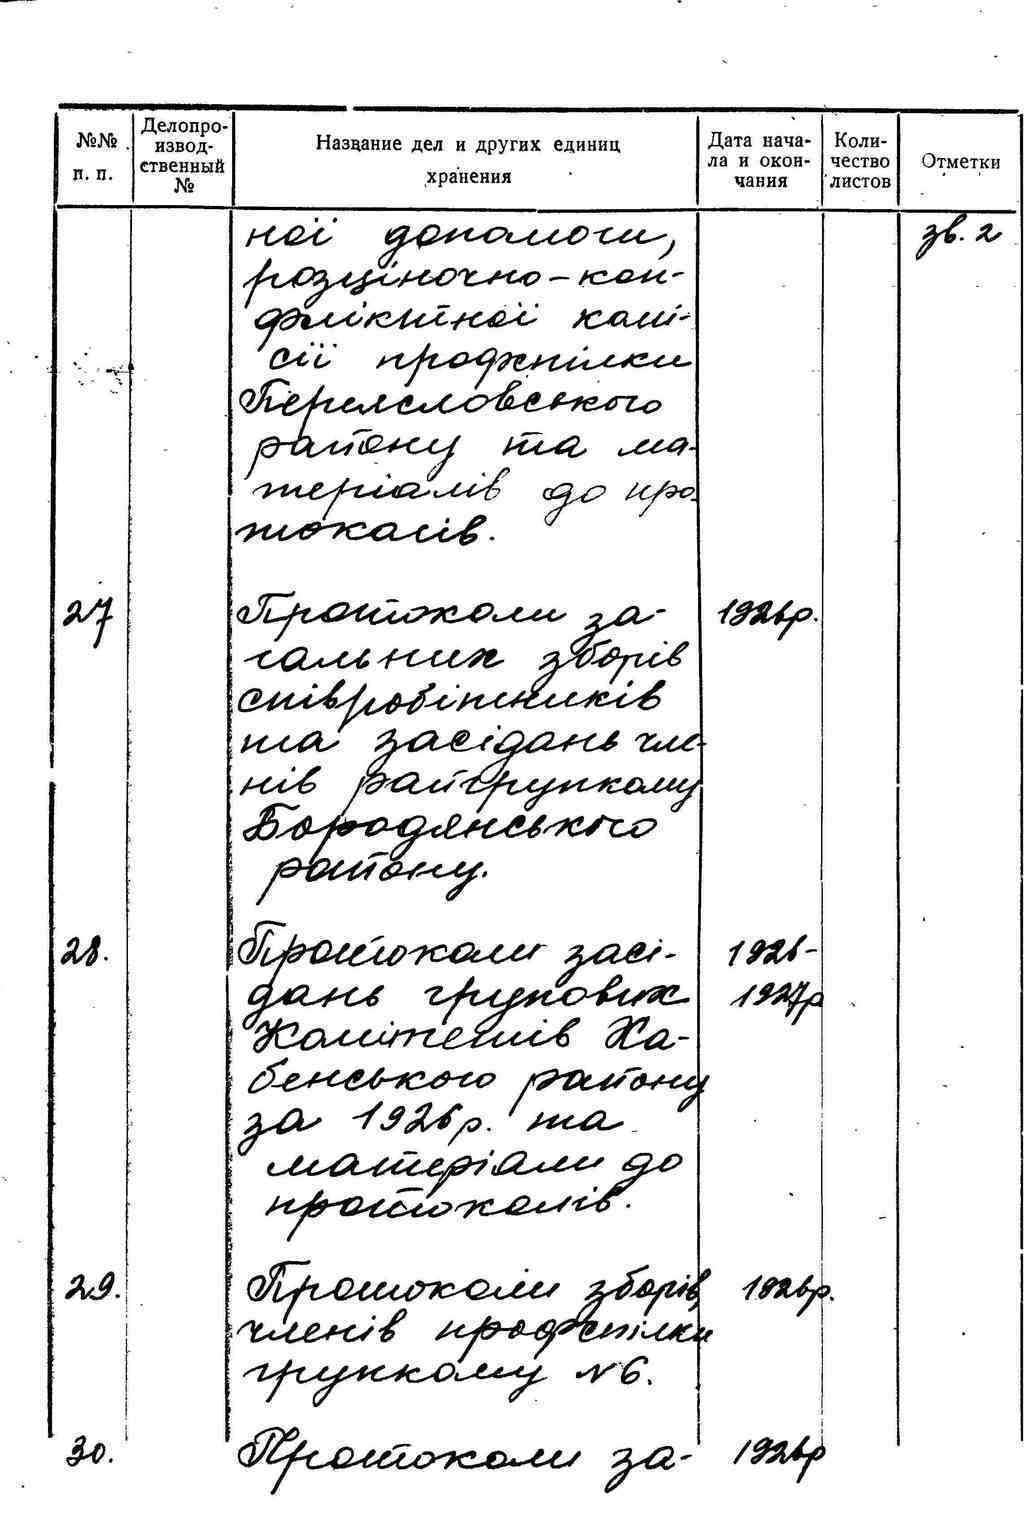 №№ п. п.
Делопроизвод-ственный №
Название дел и других единиц хранения
Дата нача-ла и окон-чания
Коли-чество листов
Отметки
ної допомоги, зв. 2
розціночно-кон-
фліктної комі-
сії профспілки
Переясловського
району та ма-
теріалів до про-
токолів.
27 Протоколи за- 1926р.
гальних зборів
співробітників
та засідань чле-
нів райгрупкому
Бородянського
району.
28. Протоколи засі- 1926-
дань групових 1927р
комітетів Ха-
бенського району
за 1926р. та
матеріали до
протоколів.
29. Протоколи зборів, 1926р.
членів профспілки
групкому №6.
30. Протоколи за- 1926р